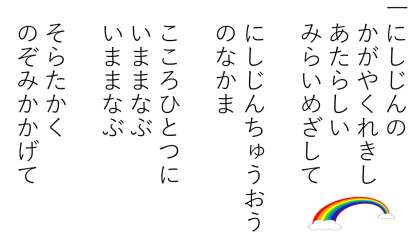 一にしじんの
かがやくれきし
あたらしい
みらいめざして
にしじんちゅうおう
のなかま
こころひとつに
いままなぶ
いままなぶ
そらたかく
のぞみかかげて